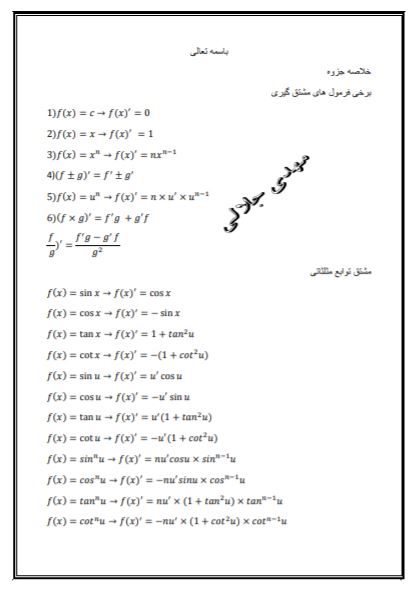 باسمه تعالی
خلاصه جزوه
برخی فرمول های مشتق گیری
1)f(x) = c → f(x)′ = 0
2)f(x) = x → f(x)′ = 1
3)f(x) = xⁿ → f(x)′ = nxⁿ⁻¹
4)(f ± g)′ = f′ ± g′
5)f(x) = uⁿ → f(x)′ = n × u′ × uⁿ⁻¹
6)(f × g)′ = f′g + g′f
f/g)′ = f′g − g′f / g²
مهدی جلالی
مشتق توابع مثلثاتی
f(x) = sin x → f(x)′ = cos x
f(x) = cos x → f(x)′ = − sin x
f(x) = tan x → f(x)′ = 1 + tan²u
f(x) = cot x → f(x)′ = −(1 + cot²u)
f(x) = sin u → f(x)′ = u′ cos u
f(x) = cos u → f(x)′ = −u′ sin u
f(x) = tan u → f(x)′ = u′(1 + tan²u)
f(x) = cot u → f(x)′ = −u′(1 + cot²u)
f(x) = sinⁿu → f(x)′ = nu′cosu × sinⁿ⁻¹u
f(x) = cosⁿu → f(x)′ = −nu′sinu × cosⁿ⁻¹u
f(x) = tanⁿu → f(x)′ = nu′ × (1 + tan²u) × tanⁿ⁻¹u
f(x) = cotⁿu → f(x)′ = −nu′ × (1 + cot²u) × cotⁿ⁻¹u